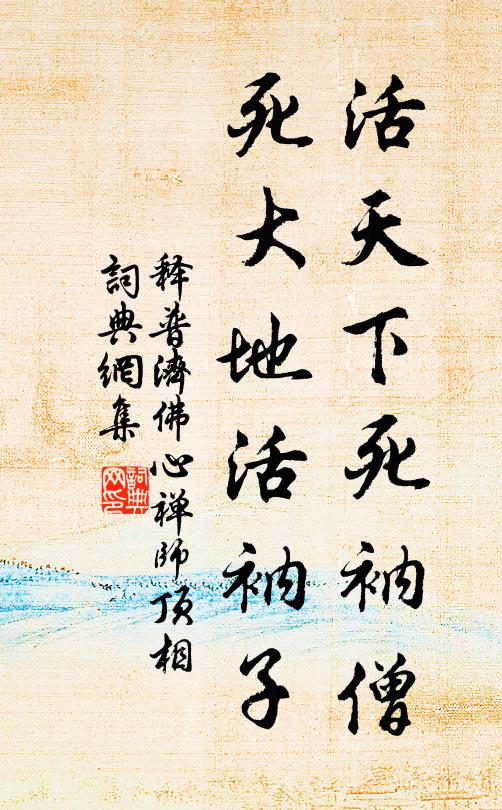 活天下死衲僧
死大地活衲子
释普濟佛心禅师顶相
詞典網集
詞典网印